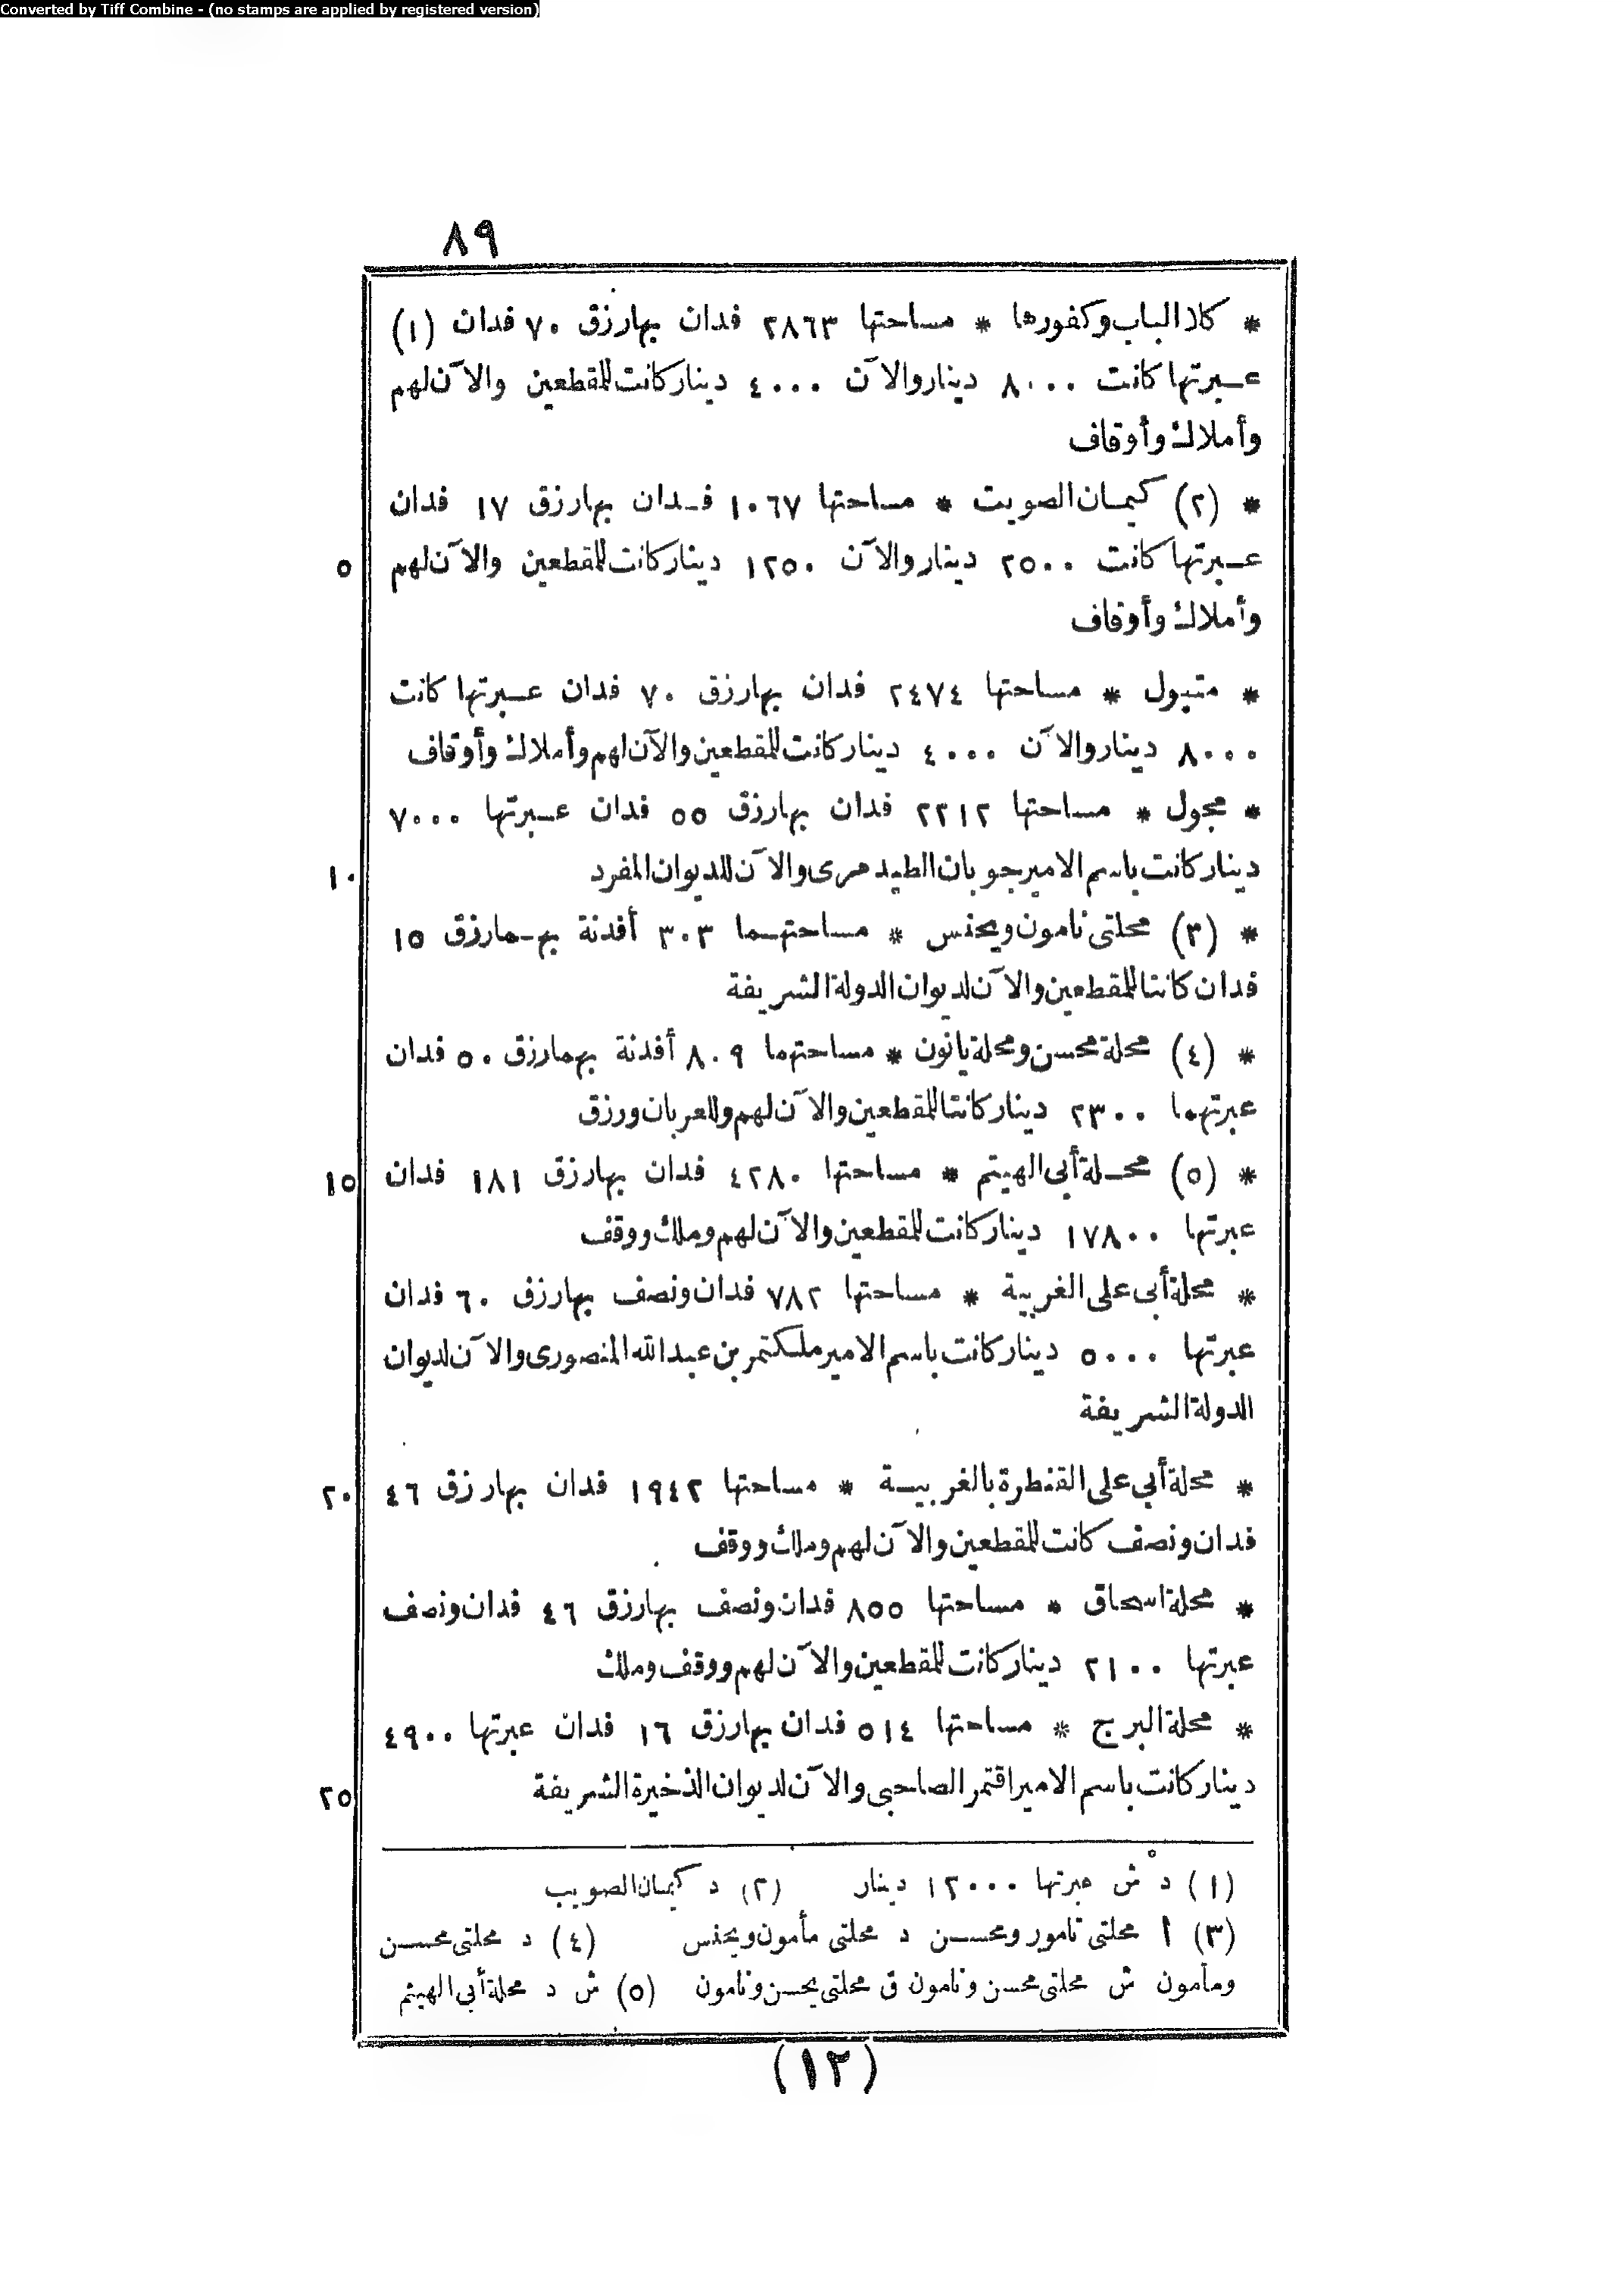 Converted by Tiff Combine - (no stamps are applied by registered version)
٨٩
* كلا الباب وكفورها * مساحتها ٢٨٦٣ فدان بها رزق ٧٠ فدان (١)
عبرتها كانت ٨٠٠٠ دينار والآن ٤٠٠٠ دينار كانت للمقطعين والآن لهم
وأملاك وأوقاف
* (٢) كيمان الصويت * مساحتها ١٠٦٧ فدان بها رزق ١٧ فدان
٥ عبرتها كانت ٢٥٠٠ دينار والآن ١٢٥٠ دينار كانت للمقطعين والآن لهم
وأملاك وأوقاف
* متبول * مساحتها ٢٤٧٤ فدان بها رزق ٧٠ فدان عبرتها كانت
٨٠٠٠ دينار والآن ٤٠٠٠ دينار كانت للمقطعين والآن لهم وأملاك وأوقاف
* مجول * مساحتها ٢٢١٢ فدان بها رزق ٥٥ فدان عبرتها ٧٠٠٠
١٠ دينار كانت باسم الامير جوبان الطيدمرى والآن للديوان المفرد
* (٣) محلتى نامون ويحنس * مساحتهما ٣٠٣ أفدنة بهما رزق ١٥
فدان كانتا للمقطعين والآن لديوان الدولة الشريفة
* (٤) محلة محسن ومحلة يانون * مساحتهما ٨٠٩ أفدنة بهما رزق ٥٠ فدان
عبرتهما ٢٣٠٠ دينار كانتا للمقطعين والآن لهم وللعربان ورزق
١٥ * (٥) محلة أبى الهيتم * مساحتها ٤٢٨٠ فدان بها رزق ١٨١ فدان
عبرتها ١٧٨٠٠ دينار كانت للمقطعين والآن لهم وملك ووقف
* محلة أبى على الغربية * مساحتها ٧٨٢ فدان ونصف بها رزق ٦٠ فدان
عبرتها ٥٠٠٠ دينار كانت باسم الامير ملكتمر بن عبد الله المنصورى والآن لديوان
الدولة الشريفة
٢٠ * محلة أبى على القنطرة بالغربية * مساحتها ١٩٤٢ فدان بها رزق ٤٦
فدان ونصف كانت للمقطعين والآن لهم وملك ووقف
* محلة اسحاق * مساحتها ٨٥٥ فدان ونصف بها رزق ٤٦ فدان ونصف
عبرتها ٢١٠٠ دينار كانت للمقطعين والآن لهم ووقف وملك
* محلة البرج * مساحتها ٥١٤ فدان بها رزق ١٦ فدان عبرتها ٤٩٠٠
٢٥ دينار كانت باسم الامير اقتمر الصاحبى والآن لديوان الذخيرة الشريفة
(١) د ش عبرتها ١٢٠٠٠ دينار (٢) د كيمان الصويب
(٣) ا محلتى نامور ومحسن د محلتى مأمون ويحنس (٤) د محلتى محسن
ومأمون ش محلتى محسن ونامون ق محلتى يحسن ونامون (٥) ش د محلة أبى الهيثم
(١٢)